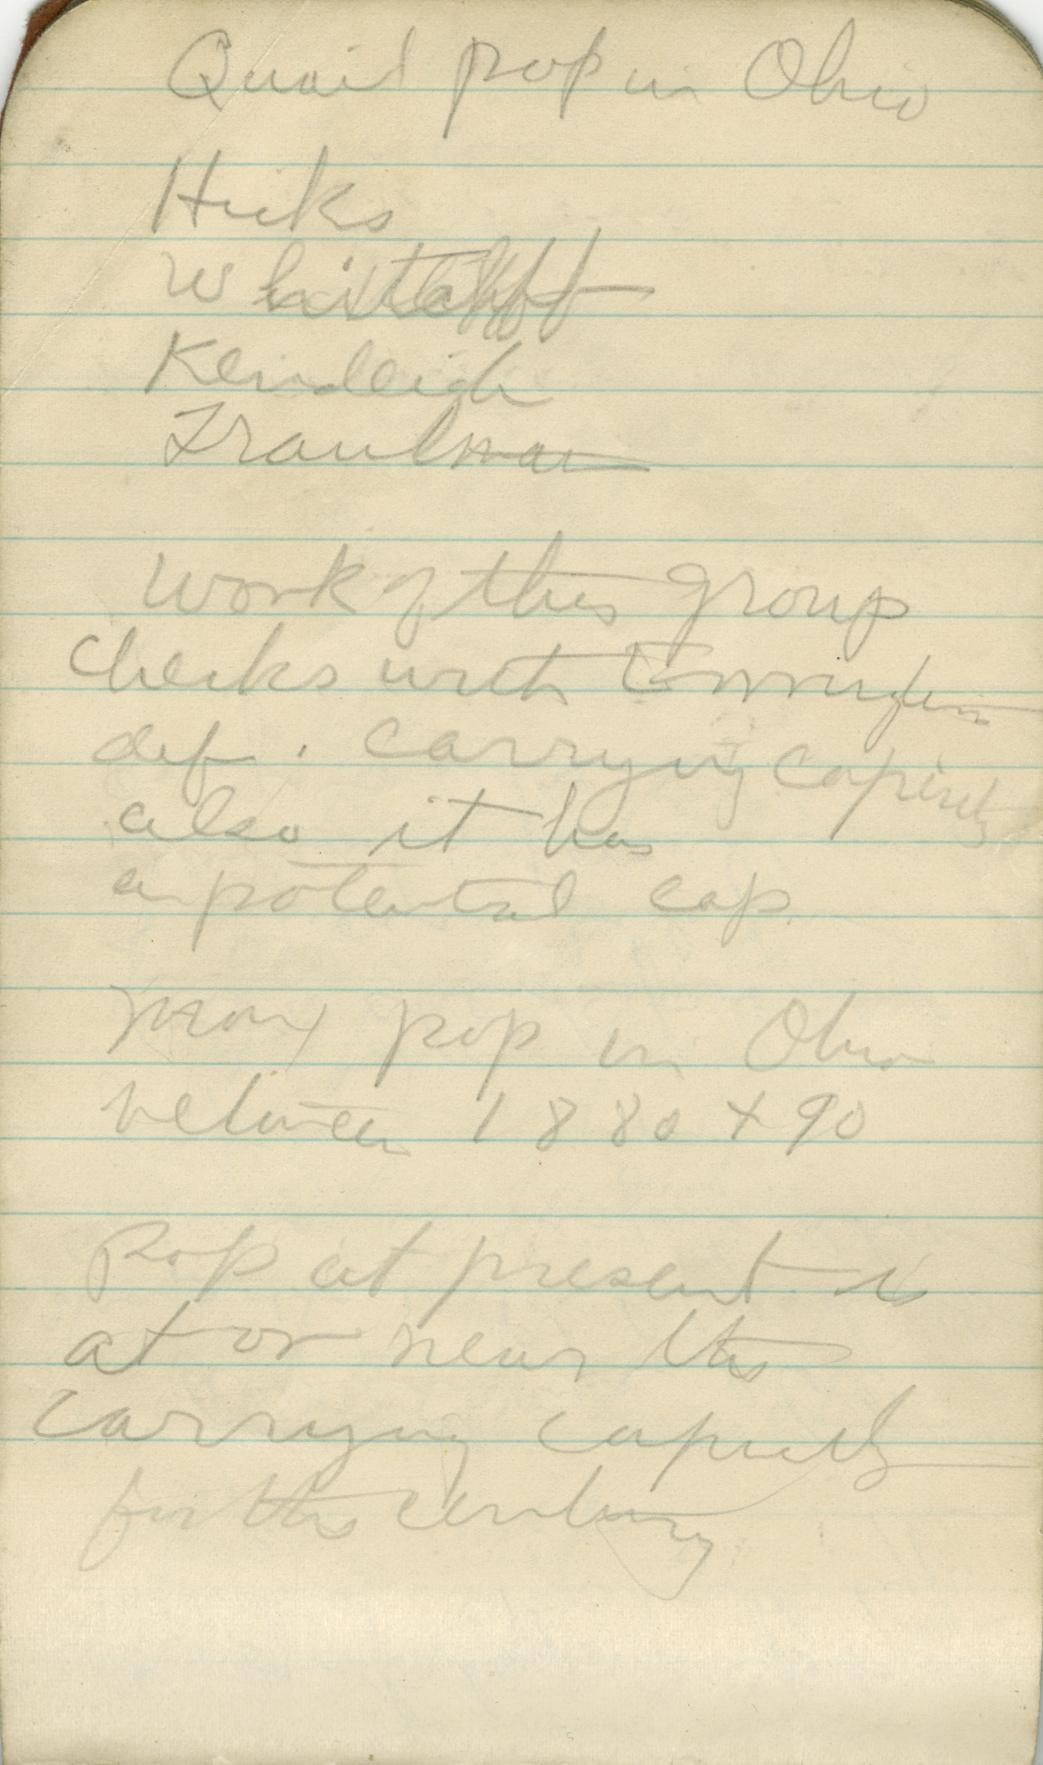 Quail pop in Ohio
Hicks
Kendeigh
Trautman
Work of this group
checks with Errington
def. carrying capacity
also it has
a potential cap.
max pop in Ohio
between 1880 + 90
Pop at present is
at or near the
carrying capacity
for this century